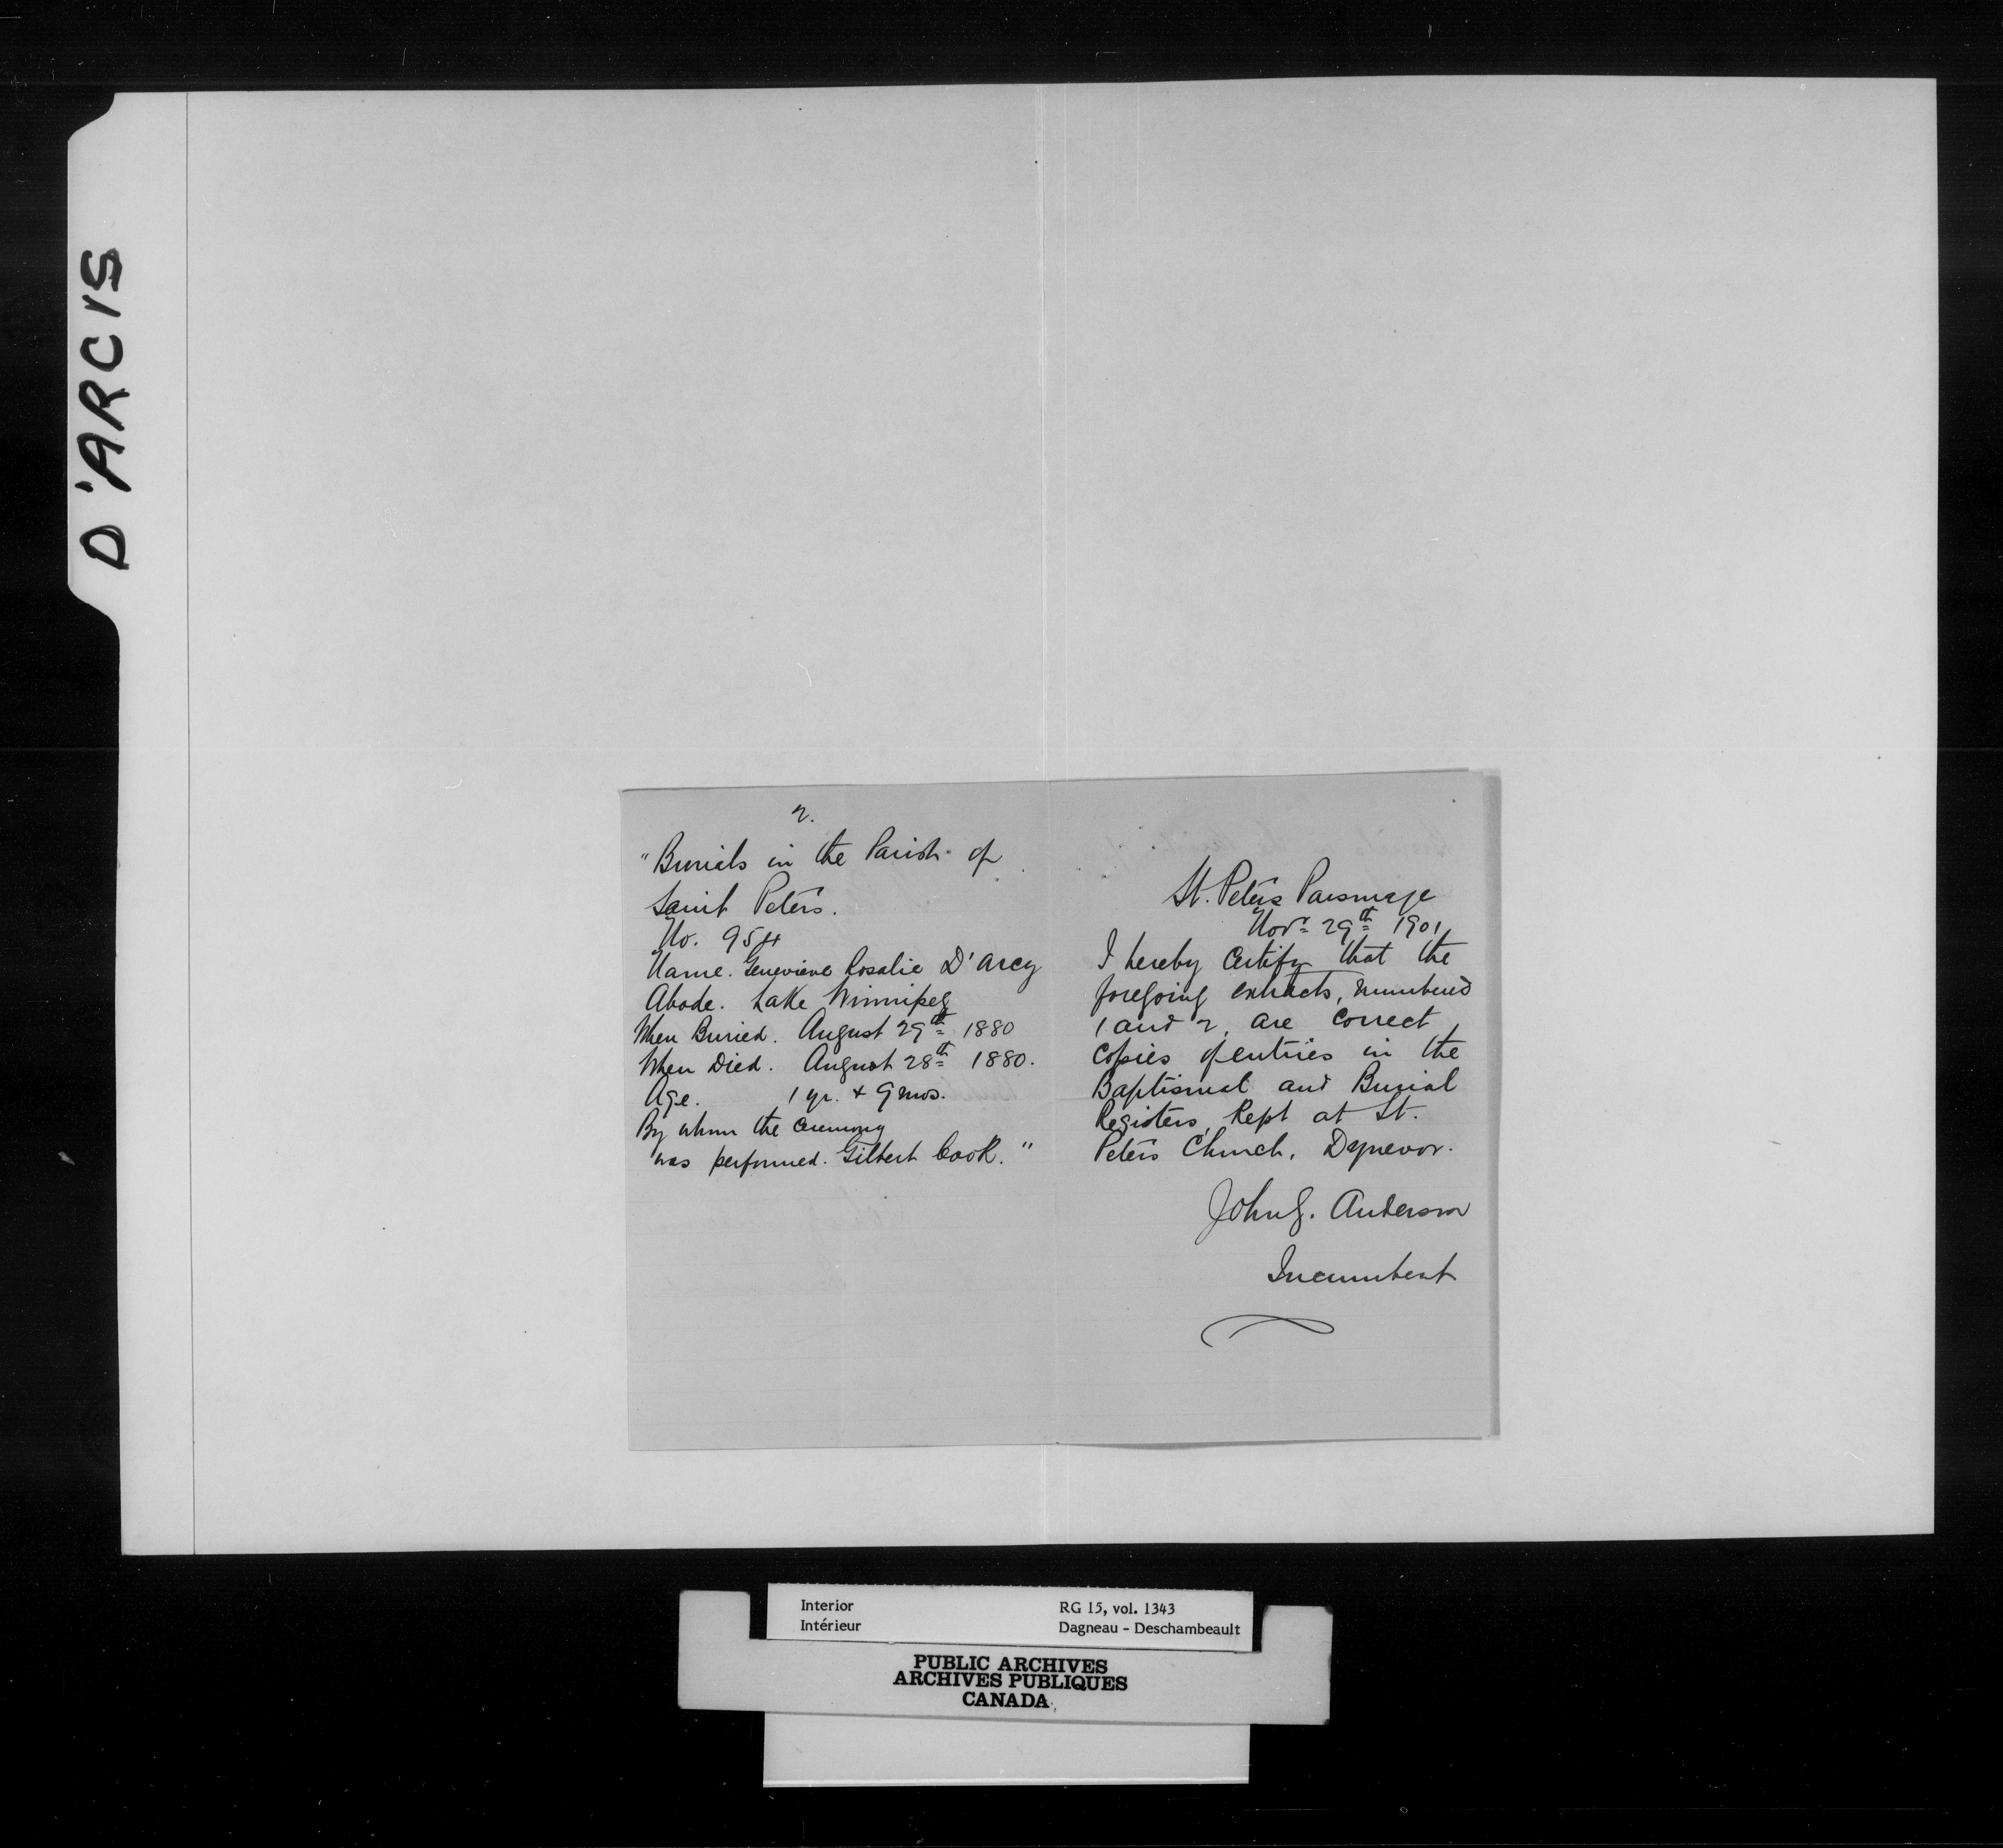 D'ARCIS
2.
"Burials in the Parish of
Saint Peters.
No. 954
Name. Genevieve Rosalie D'Arcy
Abode. Lake Winnipeg
When Buried. August 29th 1880
When Died. August 28th 1880.
Age. 1 yr. + 9 mos.
By whom the ceremony
was performed. Gilbert Cook."
St. Peter's Parsonage
Novr 29th 1901
I hereby certify that the
foregoing extracts, numbered
1 and 2, are correct
copies of entries in the
Baptismal and Burial
Registers, kept at St.
Peter's Church, Dynevor.
John G. Anderson
Incumbent
Interior RG 15, vol. 1343
Intérieur Dagneau - Deschambeault
PUBLIC ARCHIVES
ARCHIVES PUBLIQUES
CANADA